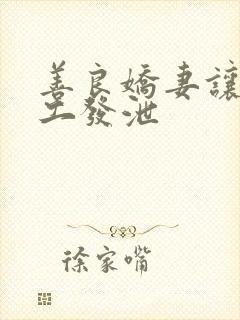 善良嬌妻讓
工發泄
徐家嘴